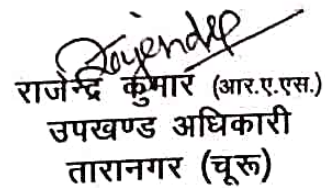 Rajender
राजेन्द्र कुमार (आर.ए.एस.)
उपखण्ड अधिकारी
तारानगर (चूरू)